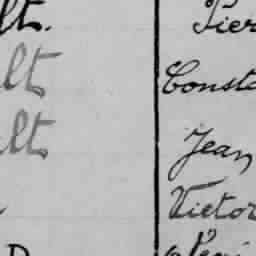 lt. Pier
lt Consta
lt Jean
Victor